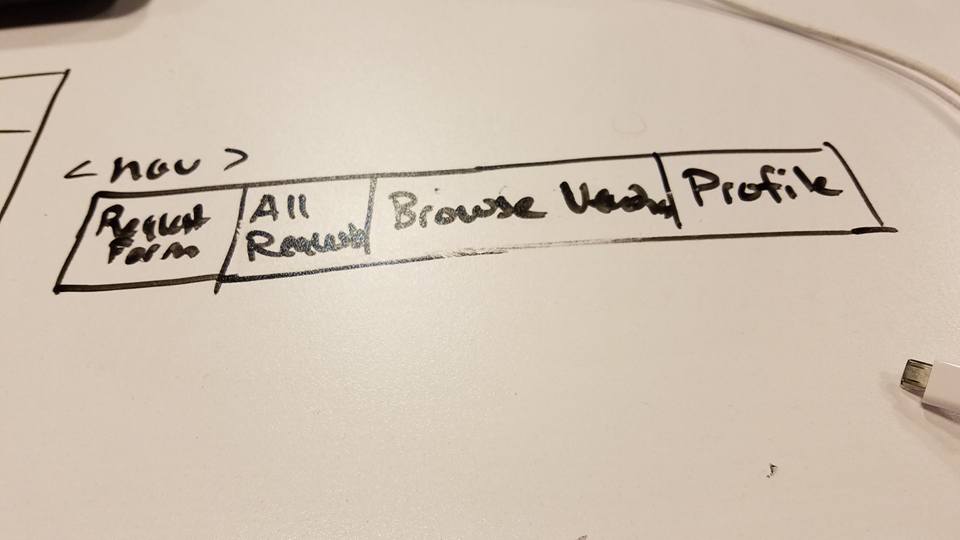 <nav>
Request
Form
All
Requests
Browse Vendors
Profile